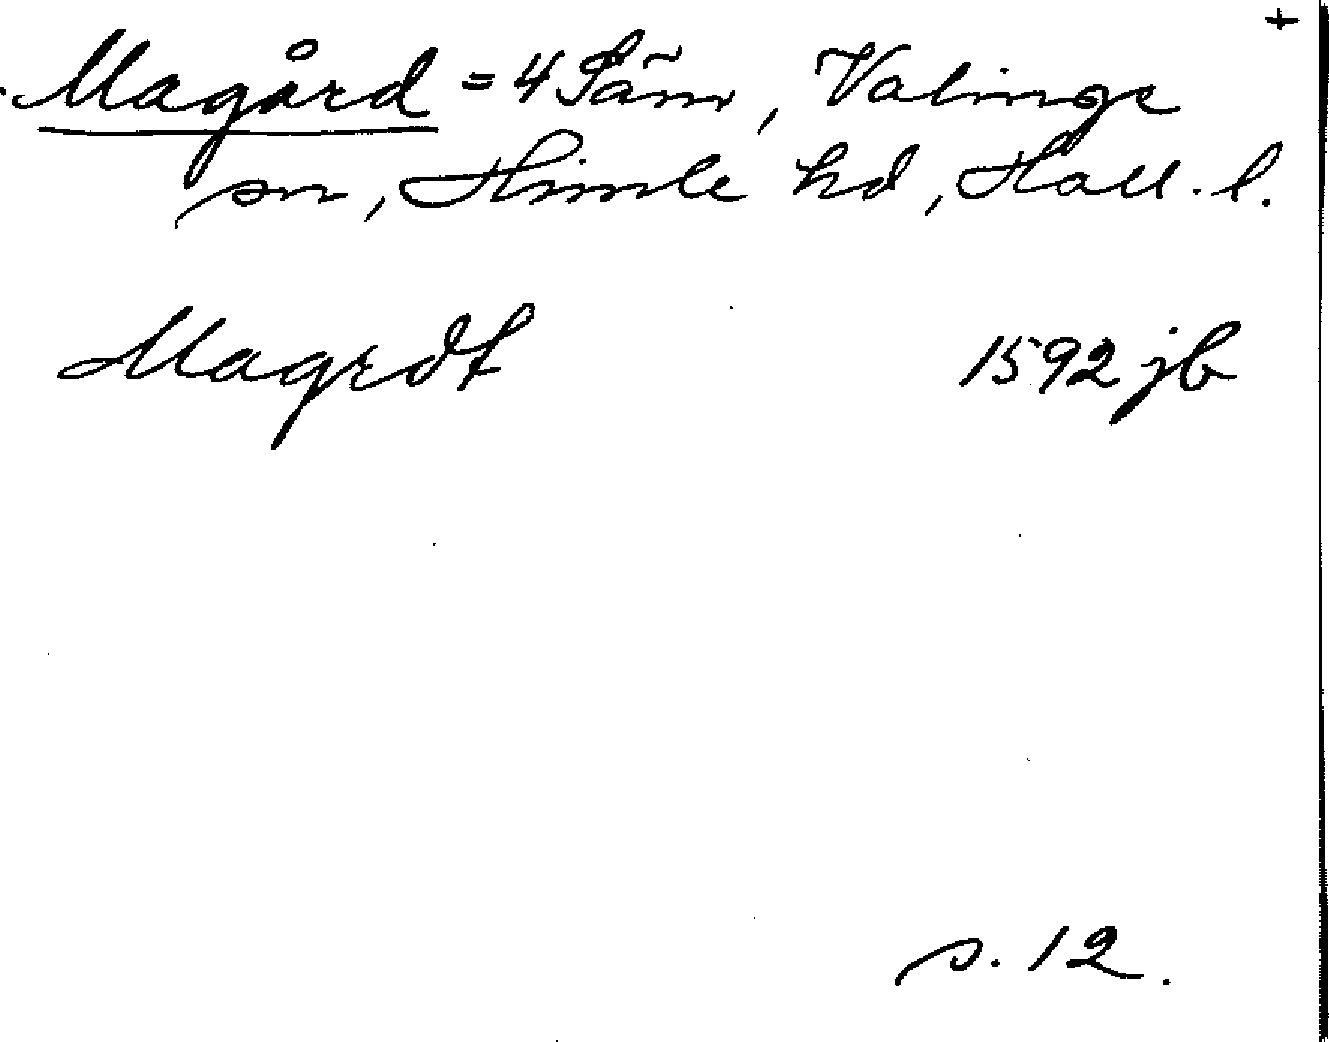 +
Magård = 4 Säm, Valinge
sn, Himle hd, Hall. l.
Magrdt 1592 jb
s. 12.